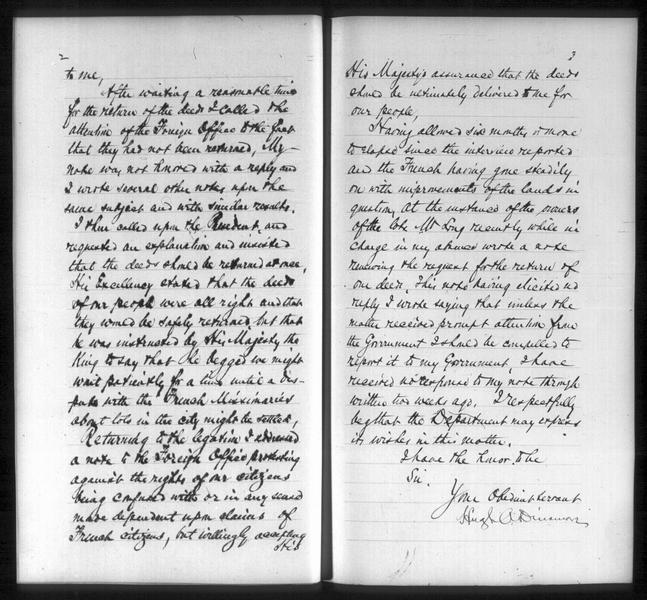 2
to me,
After waiting a reasonable time
for the return of the deeds I called the
attention of the Foreign Office to the fact
that they had not been returned, My
note was not honored with a reply and
I wrote several other notes upon the
same subject and with similar results.
I then called upon the President, and
requested an explanation and insisted
that the deeds should be returned at once,
His Excellency stated that the deeds
of our people were all right and that
they would be safely returned, but that
he was instructed by His Majesty the
King to say that he begged we might
wait patiently for a time until a dis-
pute with the French Missionaries
about lots in the city might be settled,
Returning to the legation I addressed
a note to the Foreign Office protesting
against the rights of our citizens
being confused with or in any
made dependent upon claims of
French citizens, but willingly accepting
His
3
His Majesty's assurance that the deeds
should be ultimately delivered to me for
our people,
Having allowed six months or more
to elapse since the interview reported
and the French having gone steadily
on with improvements of the lands in
question, at the instance of the owners
of the lots Mr Long recently while in
charge in my absence wrote a note
renewing the request for the return of
our deeds. This note having elicited no
reply I wrote saying that unless the
matter received prompt attention from
the Government I should be compelled to
report it to my Government, I have
received no response to my note though
written two weeks ago. I respectfully
beg that the Department may express
its wishes in this matter.
I have the honor to be
Sir,
Your Obedient servant
Hugh A Dinsmore